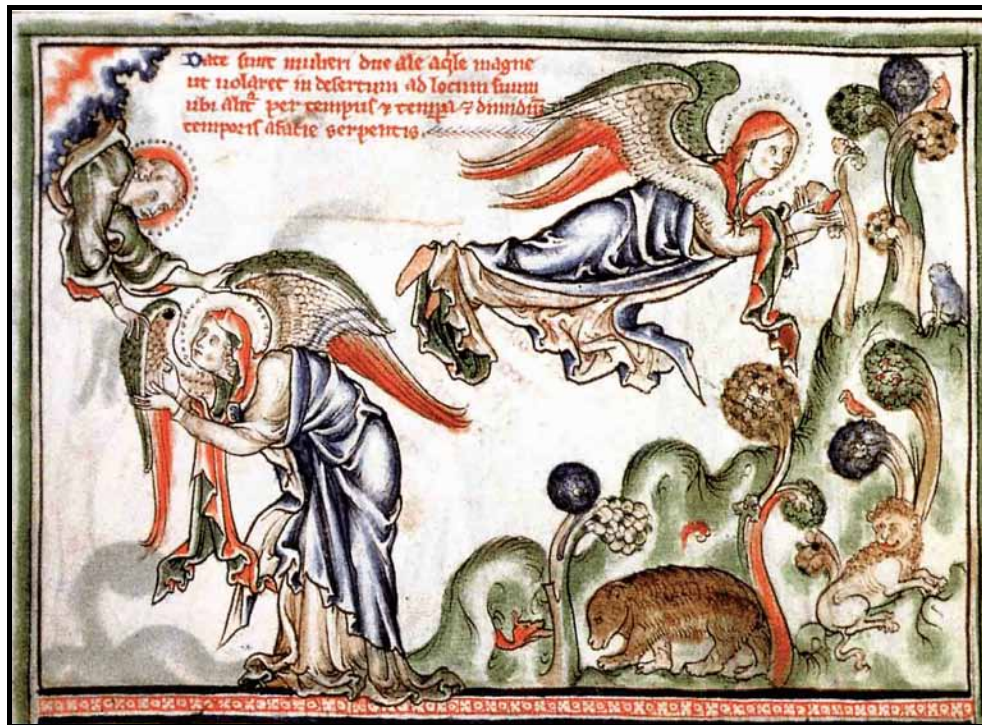 Date sunt mulieri due ale aq̇le magne
ut uolaret in desertum ad locum suum
ubi alit͛ per tempus ⁊ temṗa ⁊ dimidiū
temporis afatie serpentis.